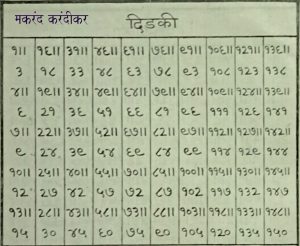 मकरंद करंदीकर
दिडकी
१॥ १६॥ ३१॥ ४६॥ ६१॥ ७६॥ ९१॥ १०६॥ १२१॥ १३६॥
३ १८ ३३ ४८ ६३ ७८ ९३ १०८ १२३ १३८
४॥ १९॥ ३४॥ ४९॥ ६४॥ ७९॥ ९४॥ १०९॥ १२४॥ १३९॥
६ २१ ३६ ५१ ६६ ८१ ९६ १११ १२६ १४१
७॥ २२॥ ३७॥ ५२॥ ६७॥ ८२॥ ९७॥ ११२॥ १२७॥ १४२॥
९ २४ ३९ ५४ ६९ ८४ ९९ ११४ १२९ १४४
१०॥ २५॥ ४०॥ ५५॥ ७०॥ ८५॥ १००॥ ११५॥ १३०॥ १४५॥
१२ २७ ४२ ५७ ७२ ८७ १०२ ११७ १३२ १४७
१३॥ २८॥ ४३॥ ५८॥ ७३॥ ८८॥ १०३॥ ११८॥ १३३॥ १४८॥
१५ ३० ४५ ६० ७५ ९० १०५ १२० १३५ १५०